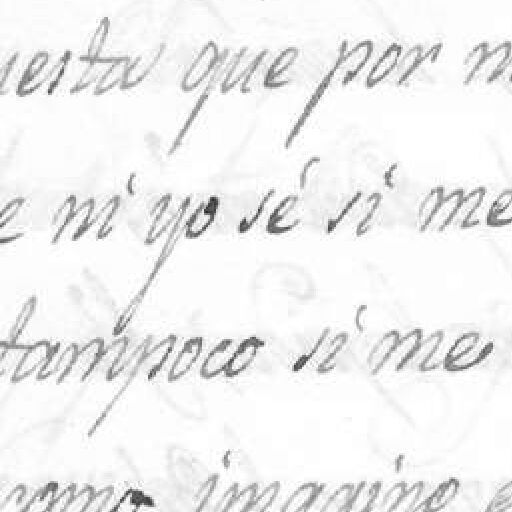 uesta que por m
e ni yo sé si me
tampoco si me
como imagino e